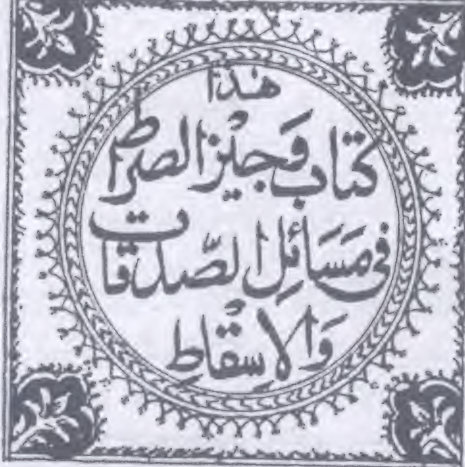 هٰذا
كتاب وَجيْز الصراط
فى مَسَائِل الصَّدقات
وَالاسْقاطِ